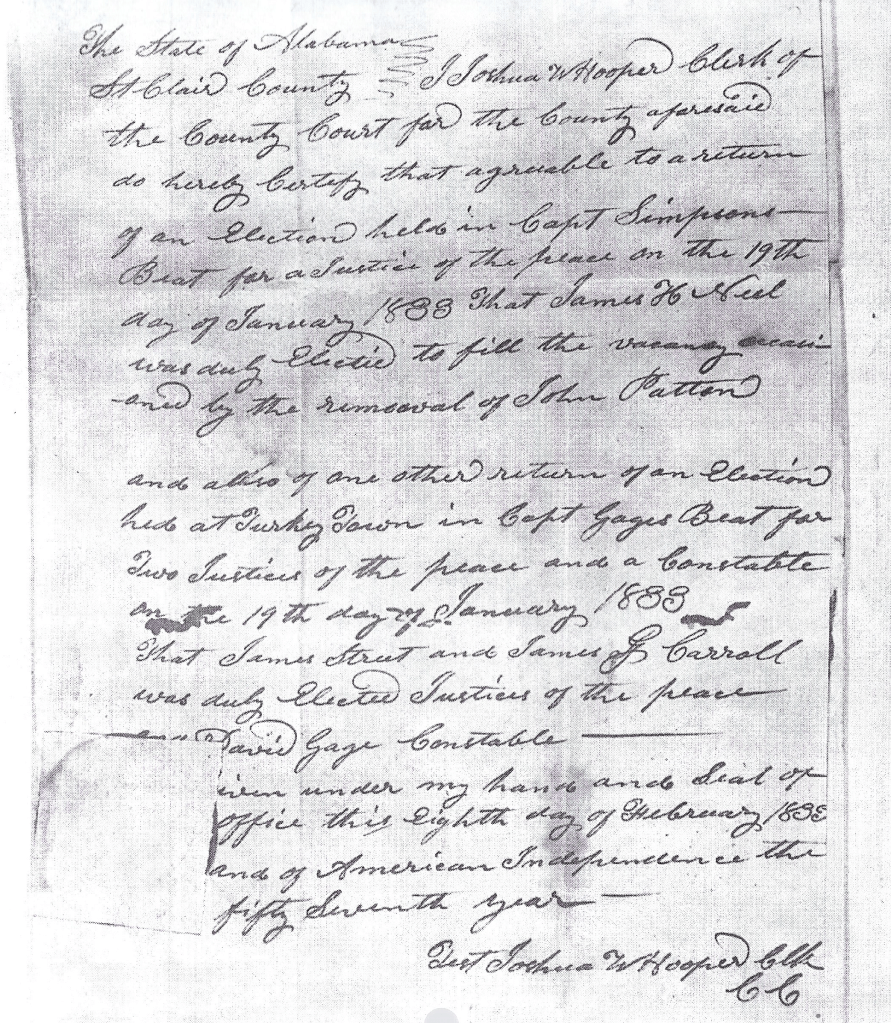 The State of Alabama
St Clair County I Joshua W Hooper Clerk of
the County Court for the County aforesaid
do hereby Certify that agreuable to a return
of an Election held in Capt Simpsons
Beat for a Justice of the peace on the 19th
day of January 1833 That James H Neel
was duly Elected to fill the vacancy occasi
oned by the removal of John Patton
and also of one other return of an Election
hed at Turkey Town in Capt Gages Beat for
Two Justices of the peace and a Constable
on the 19th day of January 1833
That James Street and James G Carroll
was duly Elected Justices of the peace
and David Gage Constable
iven under my hand and Seal of
office this Eighth day of February 1833
and of American Independence the
fifty Seventh year
Test Joshua W Hooper Clk
C C